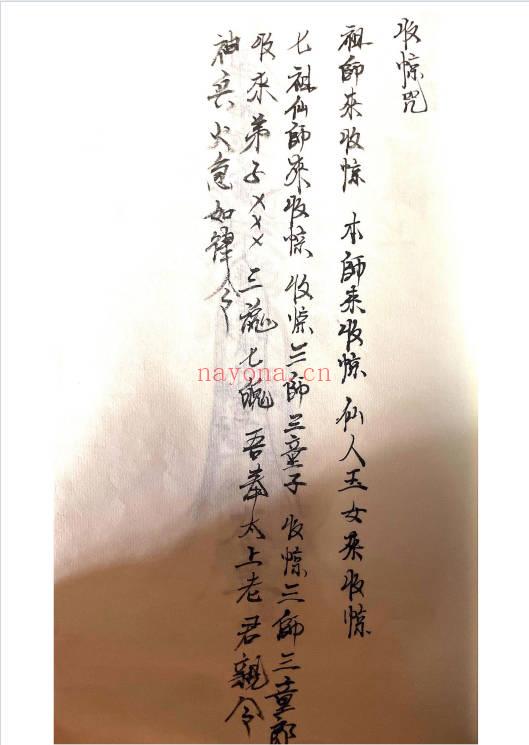 收惊咒
祖師来收惊 本師来收惊 仙人玉女来收惊
七祖仙師来收惊 收惊三師三童子 收惊三師三童郎
收来弟子××× 三魂七魄 吾奉太上老君親令
神兵火急如律令
nayona.cn